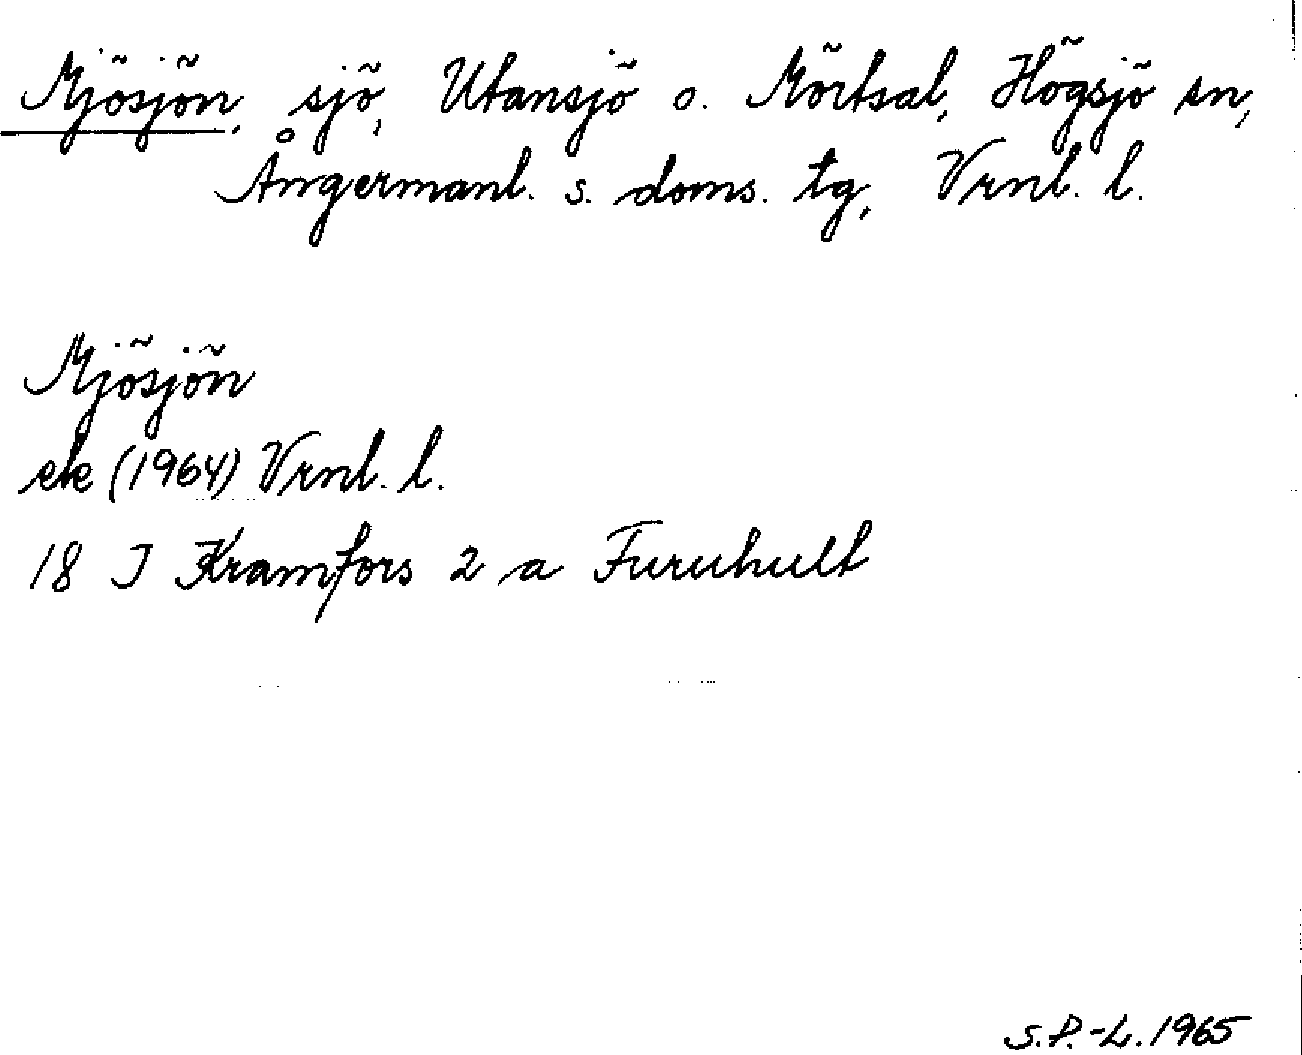 Mjösjön, sjö, Utansjö o. Mörtsal, Högsjö sn,
Ångermanl. s. doms. tg, Vrnl. l.
Mjösjön
ek (1964) Vrnl. l.
18 I Kramfors 2 a Furuhult
S.P.-L. 1965